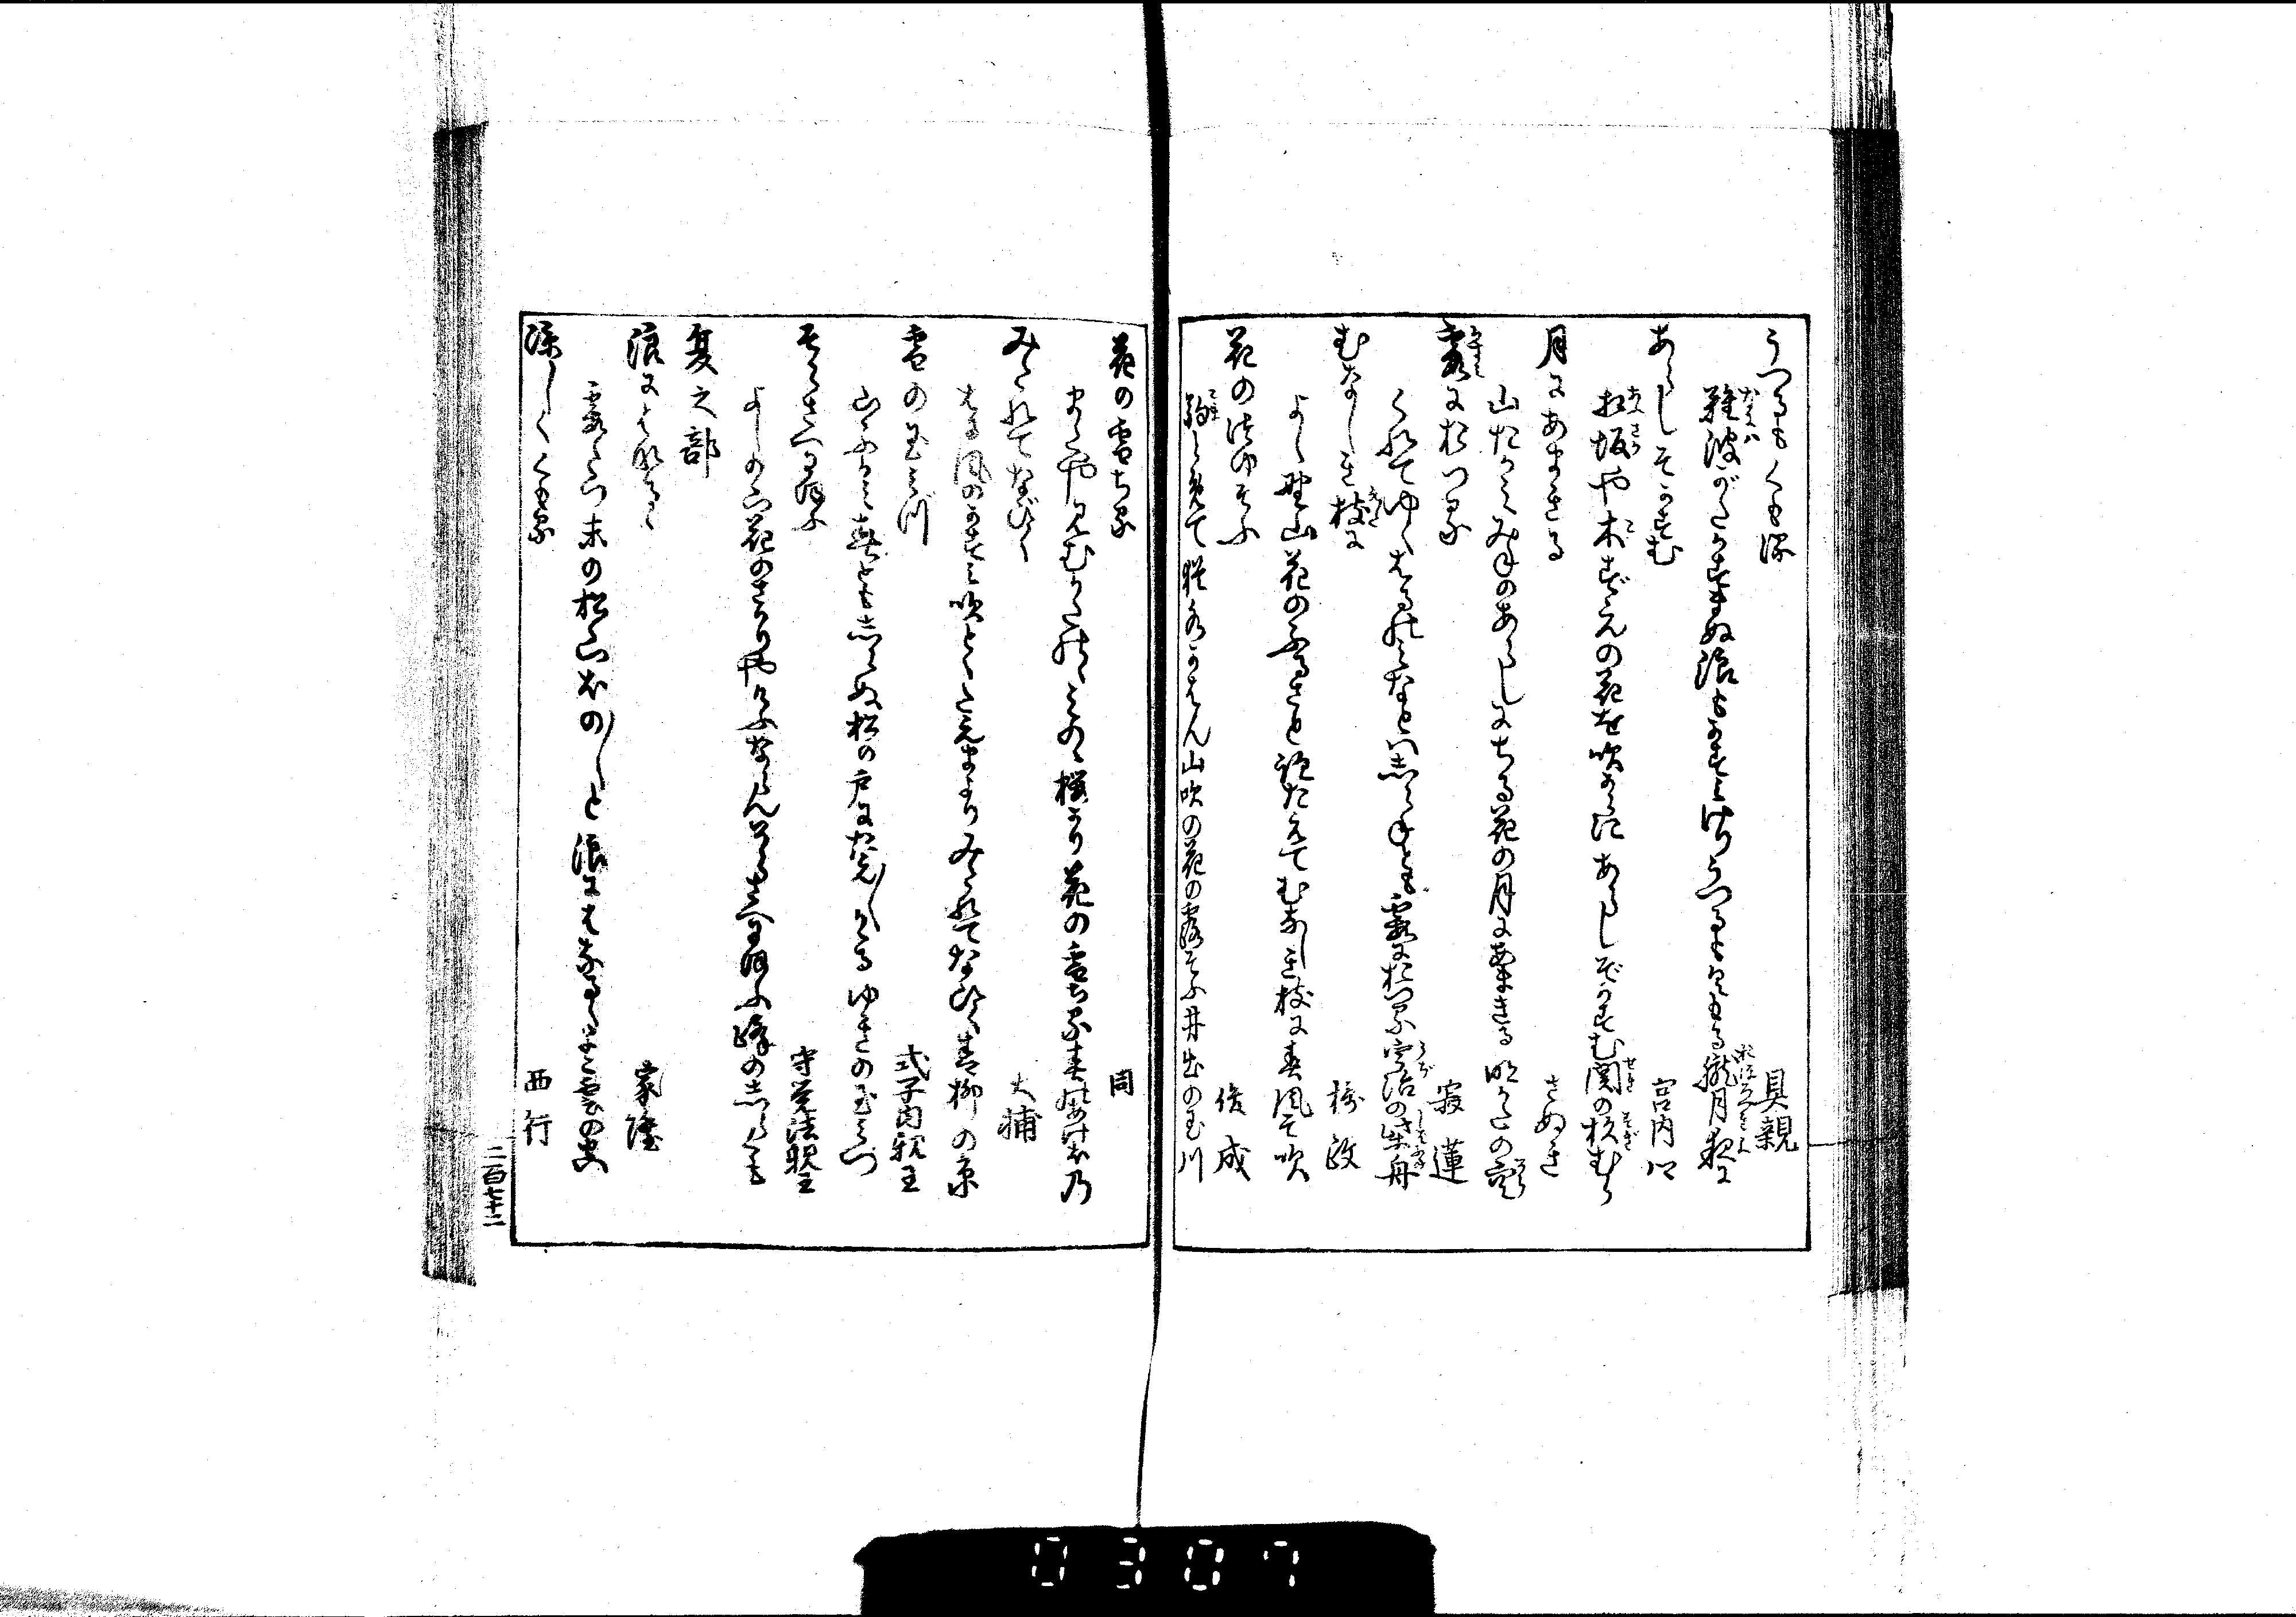 うつるもくもる 具親
難波がたかすまぬ浪もかすみけりうつるもくもる朧月夜に
あらしそかすむ 宮内卿
相坂や木ずゑの花を吹からにあらしぞかすむ関の杉むら
月にあまきる さぬき
山たかみ峰のあらしにちる花の月にあまきる明かたの空
霞におつる 寂蓮
くれてゆくはるのみなとは志らねとも霞におつる宇治の柴舟
むなしき枝に 摂政
よし野山花のふるさと跡たえてむなしき枝に春風そ吹
花の露そふ 俊成
駒とめて猶水かはん山吹の花の露そふ井出の玉川
花の雪ちる 同
またや見むかたのゝみのゝ桜かり花の雪ちる春のあけほの
みたれてなびく 大輔
はる風のかすみ吹とくたえまよりみたれてなひく青柳の糸
雪の玉みづ 式子内親王
山ふかみ春とも志らぬ松の戸にたえ〳〵かゝるゆきの玉みつ
そらさへにほふ 守覚法親王
夏之部
浪にはなるゝ 家隆
霞たつ末の松山ほの〳〵と浪にはなるゝよこ雲の空
涼しくくもる 西行
二百七十二
0307